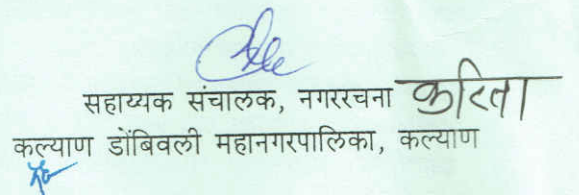 सहाय्यक संचालक, नगररचना करिता
कल्याण डोंबिवली महानगरपालिका, कल्याण